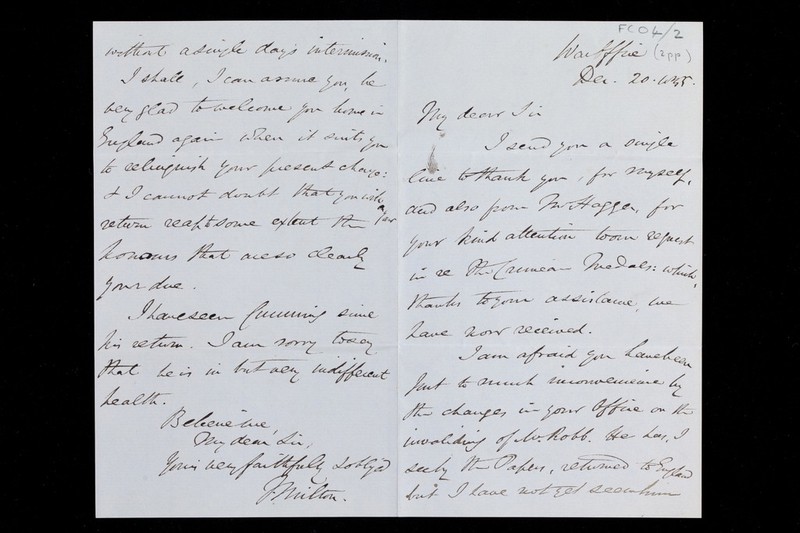 FC04/2
(2pp)
War Office
Dec. 20. 1855.
My dear Sir
I send you a single
line to thank you, for myself,
and also from Mr Haggen, for
your kind attention to our request
in re the Crimean Medals: which,
thanks to your assistance, we
have now received.
I am afraid you have been
put to much inconvenience by
the changes in your Office on the
invaliding of Mr Robb. He has, I
see by the Papers, returned to England
but I have not yet seen him
without a single day's intermission.
I shall, I can assure you, be
very glad to welcome you home in
England again when it suits you
to relinquish your present charge:
& I cannot doubt that you will
return reap to some extent the
honours that are so clearly
your due.
I have seen Cumming since
his return. I am sorry to say
that he is in but very indifferent
health.
Believe me,
My dear Sir,
Yours very faithfully & oblig'd
J. Milton.